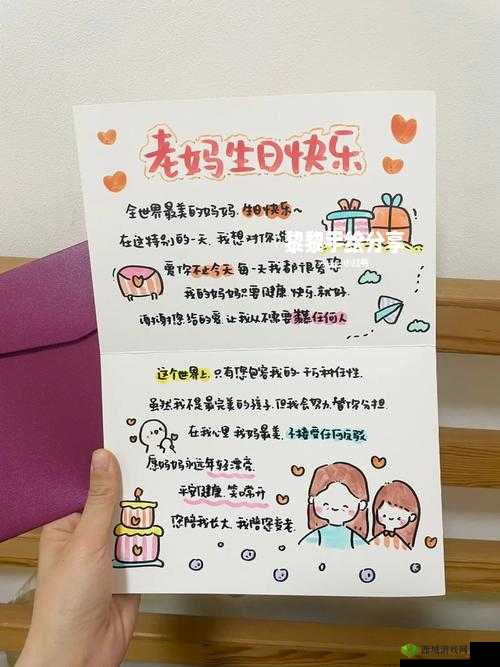 老妈生日快乐
全世界最美的妈妈,生日快乐~
在这特别的一天,我想对你说
黎黎手绘分享
小红书
爱你不止今天 每一天我都很爱您
我的妈妈只要健康 快乐 就好.
谢谢您给的爱,让我从不需要羡慕任何人
这个世界上,只有您包容我的一万种任性.
虽然我不是最完美的孩子,但我会努力替你分担.
在我心里 我妈最美,不接受任何反驳
愿妈妈永远年轻漂亮.
平安健康.笑口常开
您陪我长大,我陪您变老.
西城游戏网